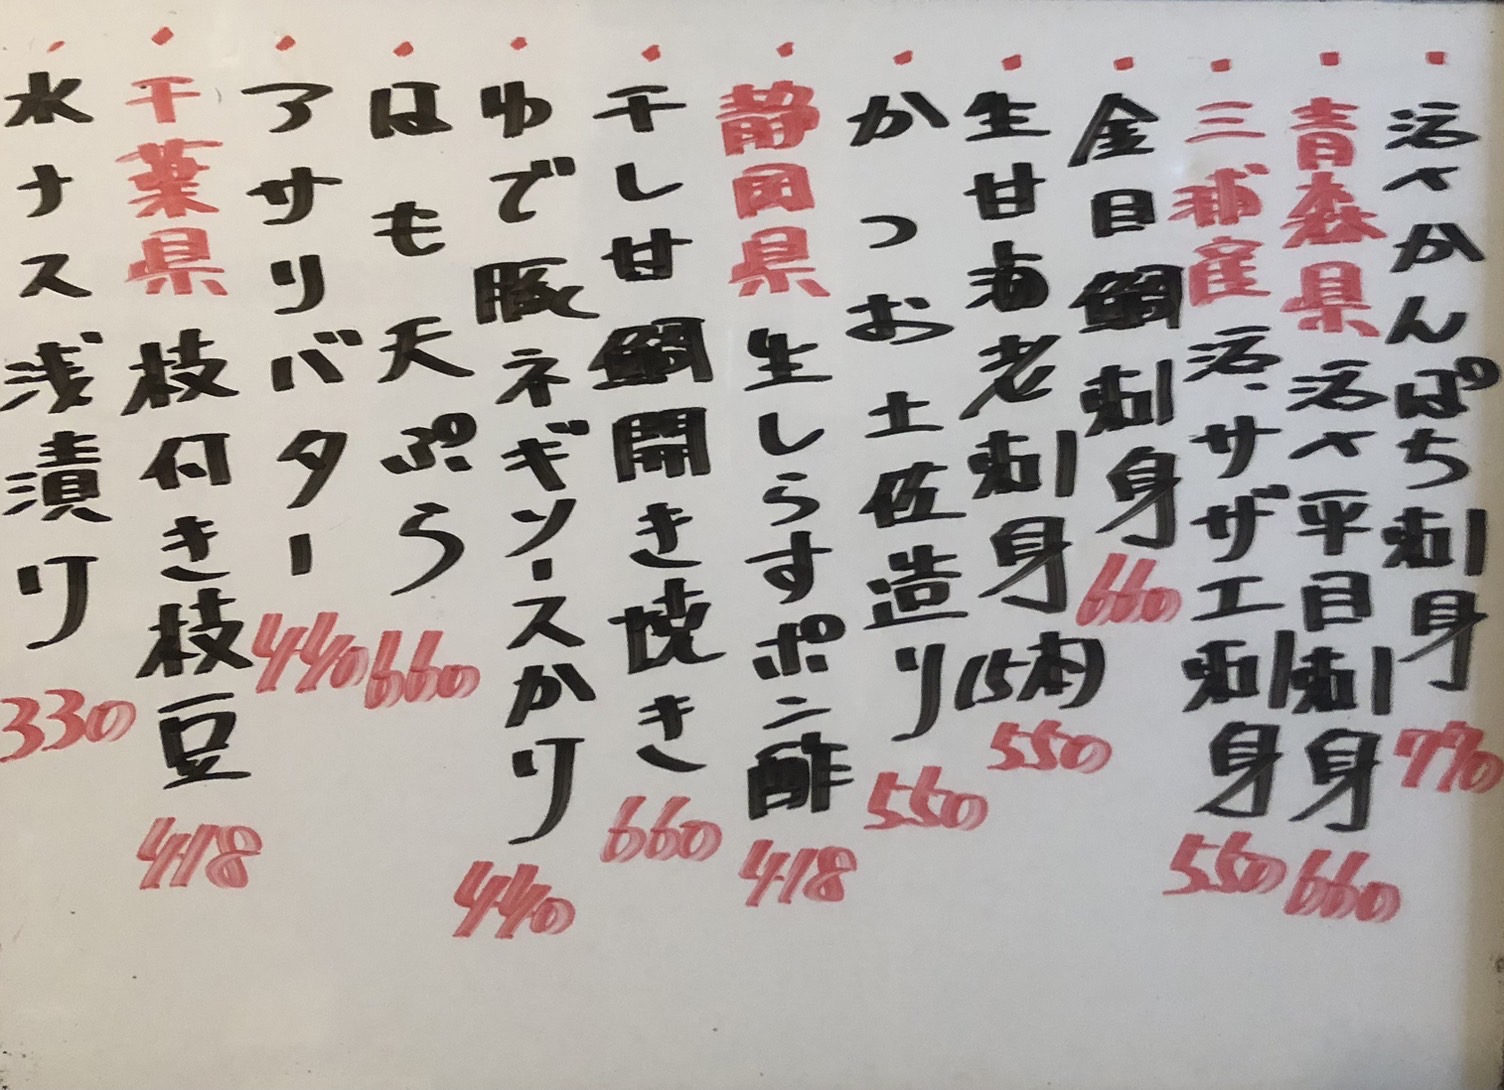 ・活〆かんぱち刺身 770
・青森県 活〆平目刺身 660
・三浦産 活、サザエ刺身 550
・金目鯛刺身 660
・生甘海老刺身(5本) 550
・かつお土佐造り 550
・静岡県 生しらすポン酢 418
・干し甘鯛開き焼き 660
・ゆで豚ネギソースかり 440
・はも天ぷら 660
・アサリバター 440
・千葉県 枝付き枝豆 418
・水ナス浅漬り 330